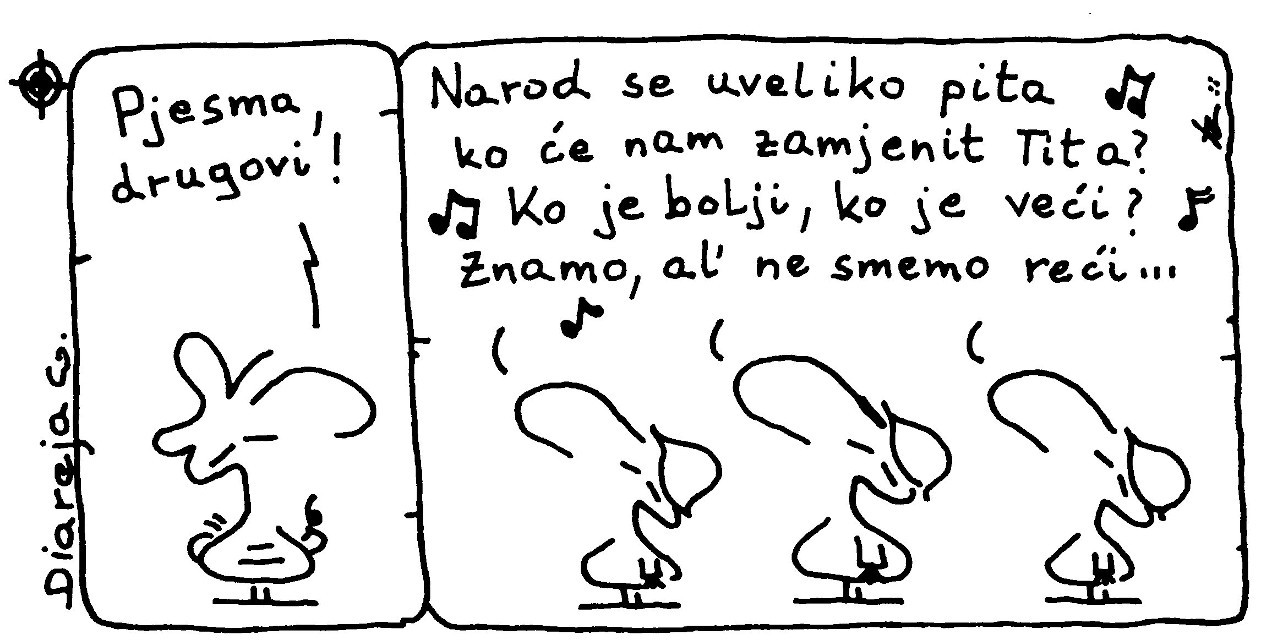 Pjesma,
drugovi!
Narod se uveliko pita
ko će nam zamjenit Tita?
Ko je bolji, ko je veći?
Znamo, al' ne smemo reći...
Diareja G.